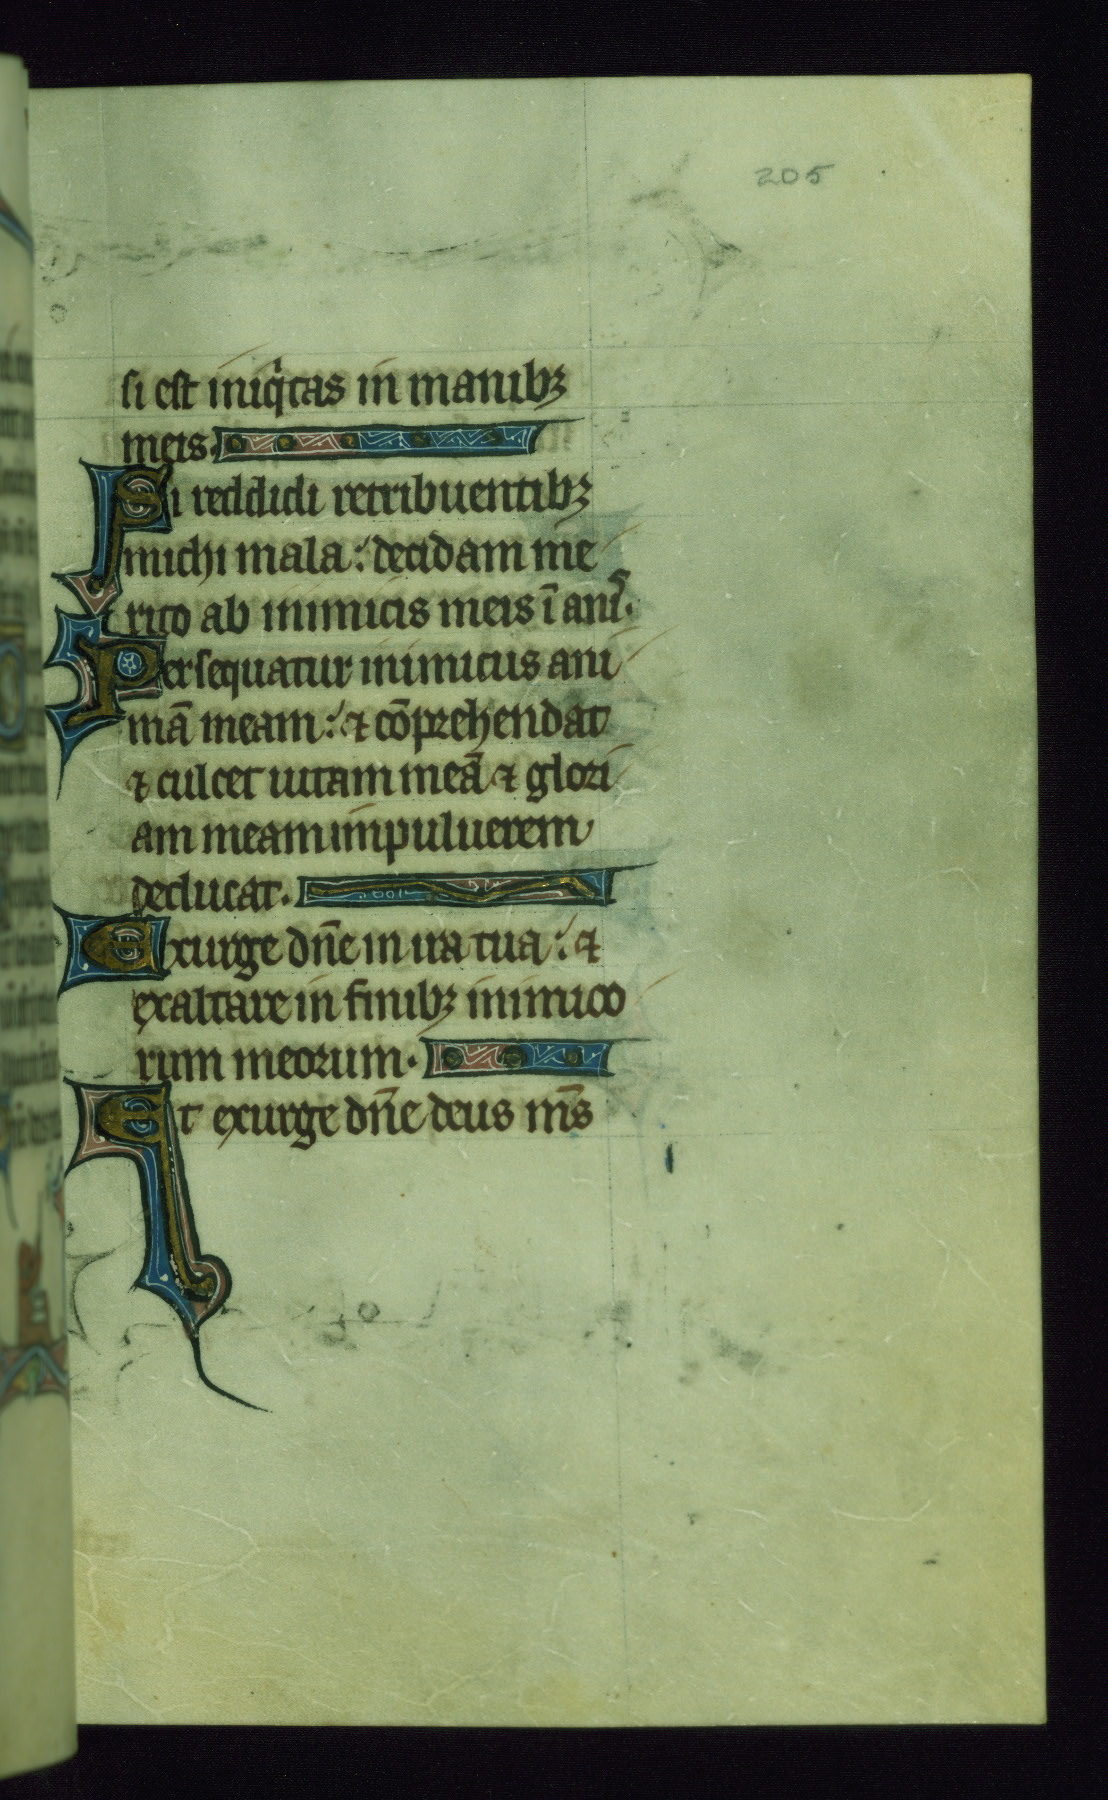 205
si est iniqͥtas in manibꝫ
meis.
Si reddidi retribuentibꝫ
michi mala: decidam me
rito ab inimicis meis ī aniˢ.
Persequatur inimicus ani
mā meam: ⁊ cōprehendat
⁊ culcet uitam meā ⁊ glori
am meam inpuluerem
deducat.
Exurge dn̄e in ira tua: ⁊
exaltare in finibꝫ inimico
rum meorum.
Et exurge dn̄e deus m̄s